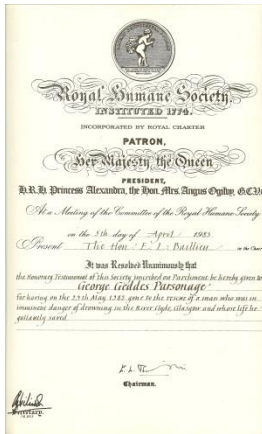 Royal Humane Society.
INSTITUTED 1774.
INCORPORATED BY ROYAL CHARTER
PATRON,
Her Majesty the Queen
PRESIDENT,
H.R.H. Princess Alexandra, the Hon. Mrs. Angus Ogilvy, G.C.V.O
At a Meeting of the Committee of the Royal Humane Society
on the 5th day of April 1983
Present The Hon E. L. Baillieu in the Chair
It was Resolved Unanimously that
the Honorary Testimonial of this Society inscribed on Parchment be hereby given to
George Geddes Parsonage
for having on the May 1982 gone to the rescue of a man who was in
imminent danger of drowning in the River Clyde, Glasgow and whose life he
gallantly saved.
Chairman.
Secretary.